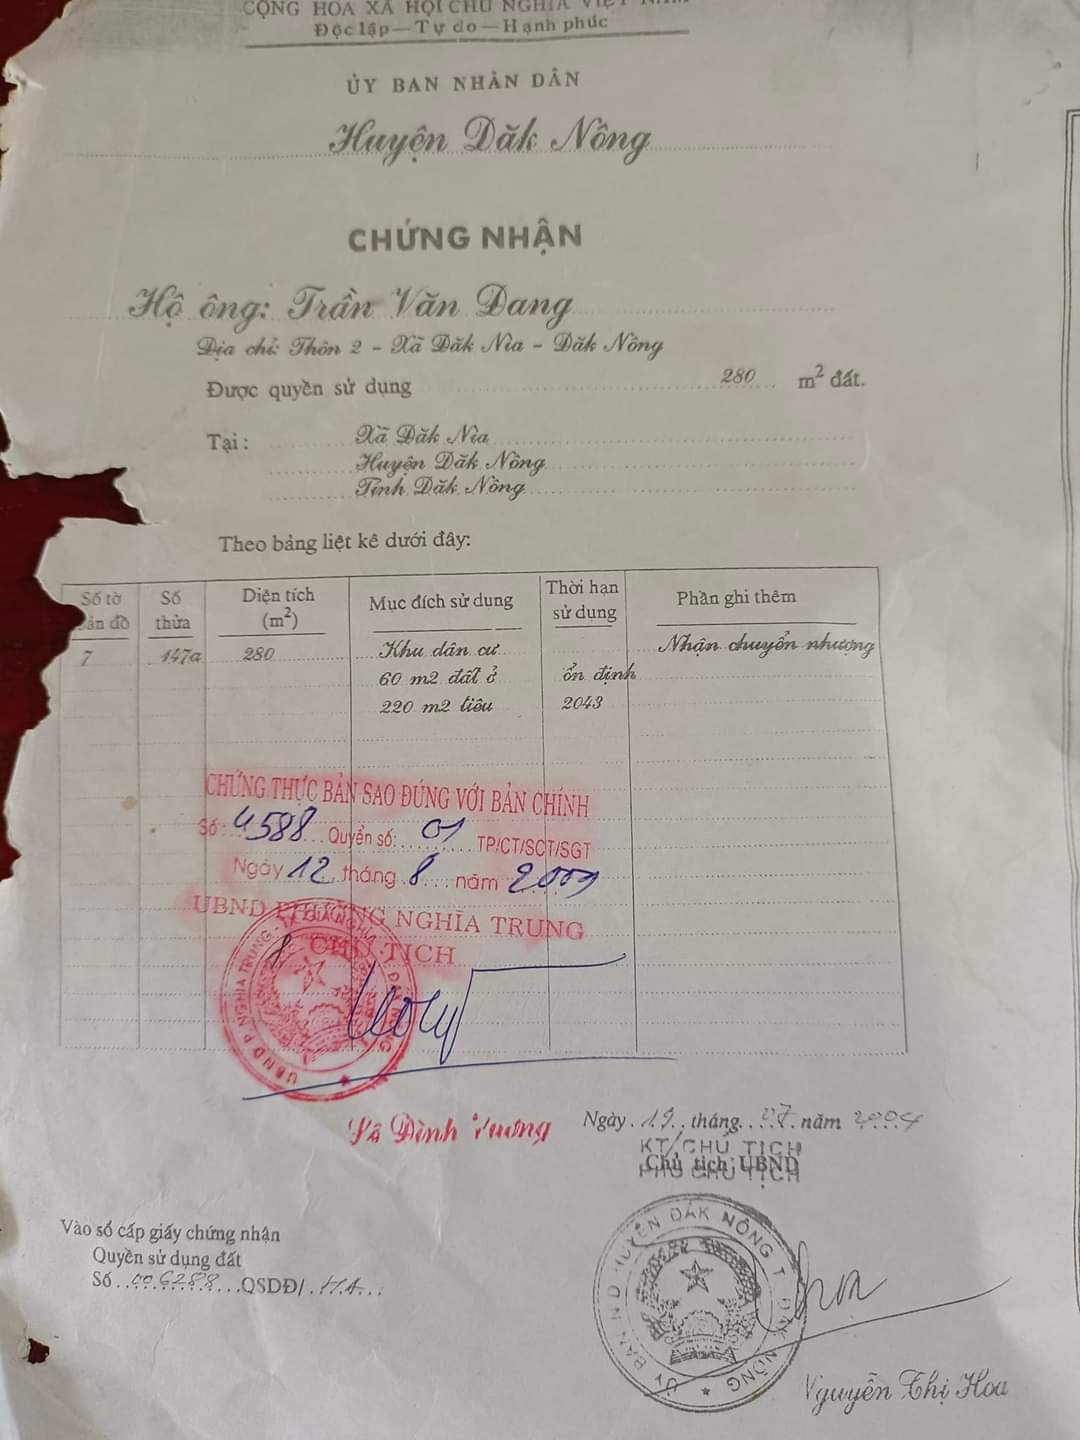 CỘNG HOA XÃ HỘI CHỦ NGHĨA VIỆT NAM
Độc lập—Tự do—Hạnh phúc
ỦY BAN NHÂN DÂN
Huyện Dăk Nông
CHỨNG NHẬN
Hộ ông: Trần Văn Dang
Địa chỉ: Thôn 2 - Xã Dăk Nia - Dăk Nông
Được quyền sử dụng 280 m2 đất.
Tại: Xã Dăk Nia
Huyện Dăk Nông
Tỉnh Dăk Nông
Theo bảng liệt kê dưới đây:
Số tờ bản đồ Số thửa Diện tích (m2) Mục đích sử dụng Thời hạn sử dụng Phần ghi thêm
7 147a 280 Khu dân cư Nhận chuyển nhượng
60 m2 đất ở ổn định
220 m2 tiêu 2043
CHỨNG THỰC BẢN SAO ĐÚNG VỚI BẢN CHÍNH
Số: 4588 Quyển số: 01 TP/CT/SCT/SGT
Ngày 12 tháng 8 năm 2009
UBND PHƯỜNG NGHĨA TRUNG
CHỦ TỊCH
Đình Vương
Ngày 19 tháng 07 năm 2004
KT/CHỦ TỊCH
Chủ tịch UBND
PHÓ CHỦ TỊCH
Vào sổ cấp giấy chứng nhận
Quyền sử dụng đất
Số QSDĐ/
ỦY BAN ND HUYỆN ĐĂK NÔNG T. ĐĂK NÔNG
Nguyễn Thị Hoa